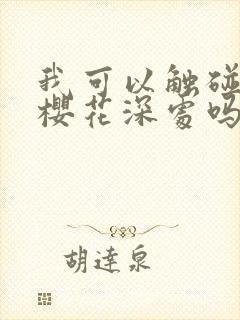 我可以触碰
樱花深处吗
胡達泉